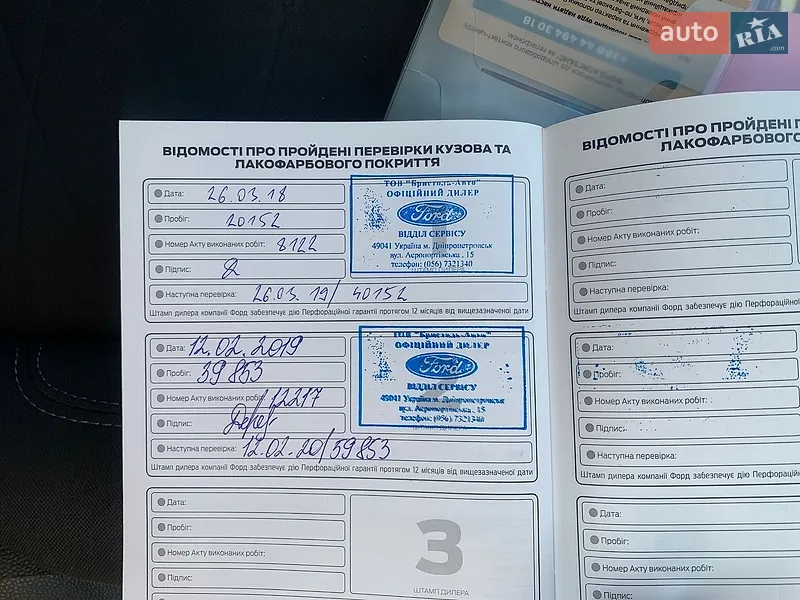 auto RIA
.com
+380 44 494 30 18
ВІДОМОСТІ ПРО ПРОЙДЕНІ ПЕРЕВІРКИ КУЗОВА ТА
ЛАКОФАРБОВОГО ПОКРИТТЯ
Дата: 26.03.18
Пробіг: 20152
Номер Акту виконаних робіт: 8122
Підпис:
Наступна перевірка: 26.03.19/ 40152
Штамп дилера компанії Форд забезпечує дію Перфораційної гарантії протягом 12 місяців від вищезазначеної дати
ТОВ "Бристоль-Авто"
ОФІЦІЙНИЙ ДИЛЕР
Ford
ВІДДІЛ СЕРВІСУ
49041 Україна м. Дніпропетровськ
вул. Аеропортівська , 15
телефон: (056) 7321340
ШТАМП ДИЛЕРА
Дата: 12.02.2019
Пробіг: 39853
Номер Акту виконаних робіт: 12217
Підпис:
Наступна перевірка: 12.02.20/59853
Штамп дилера компанії Форд забезпечує дію Перфораційної гарантії протягом 12 місяців від вищезазначеної дати
ТОВ "Бристоль-Авто"
ОФІЦІЙНИЙ ДИЛЕР
Ford
ВІДДІЛ СЕРВІСУ
49041 Україна м. Дніпропетровськ
вул. Аеропортівська , 15
телефон: (056) 7321340
ШТАМП ДИЛЕРА
Дата:
Пробіг:
Номер Акту виконаних робіт:
Підпис:
3
ШТАМП ДИЛЕРА
ВІДОМОСТІ ПРО ПРОЙДЕНІ П
ЛАКОФАРБОВОГО
Дата:
Пробіг:
Номер Акту виконаних робіт:
Підпис:
Наступна перевірка:
Штамп дилера компанії Форд забезпечує дію Перфораційної
Дата:
Пробіг:
Номер Акту виконаних робіт:
Підпис:
Наступна перевірка:
Штамп дилера компанії Форд забезпечує дію Перфораційної
Дата:
Пробіг:
Номер Акту виконаних робіт:
Підпис: